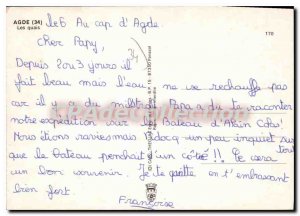 AGDE (34)
Les quais
170
le 6 Au cap d'Agde.
Cher Papy,
Depuis 2 ou 3 jours il
fait beau mais l'eau ne se rechauffe pas
car il y a du mistral. Papa a du te raconter
notre expédition sur le Bateau d'Alain Colas
Nous étions ravies mais un peu inquiet sur tout
que le bateau penchait d'un côté!! Ce sera
un bon souvenir. Je te quitte en t'embrassant
bien fort.
Françoise